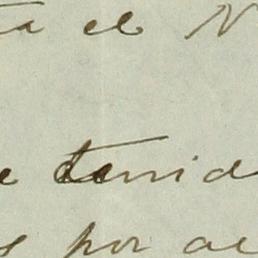 a el N
e tenid
s por ae